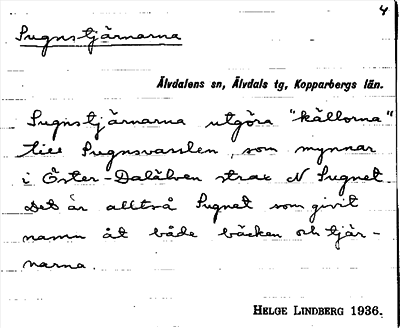 4
Sugnstjärnarna
Älvdalens sn, Älvdals tg, Kopparbergs län.
Sugnstjärnarna utgöra "källorna"
till Sugnsvasslen, som mynnar
i Öster-Dalälven strax N Sugnet.
Det är alltså Sugnet som givit
namn åt både bäcken och tjär-
narna.
HELGE LINDBERG 1936.